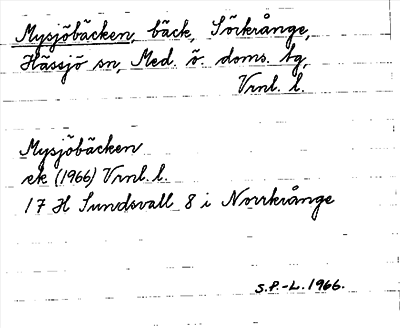 Mysjöbäcken, bäck, Sörkrånge,
Hässjö sn, Med. ö. doms. tg,
Vrnl. l.
Mysjöbäcken
ek (1966) Vrnl. l.
17 H Sundsvall 8 i Norrkrånge
S.P.-L. 1966.